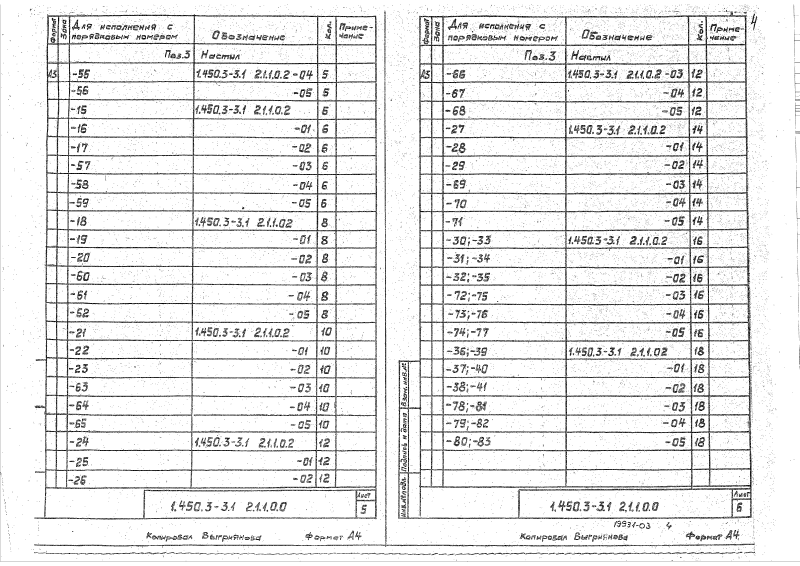 4
Формат Зона Для исполнения с порядковым номером Обозначение Кол. Примечание
Поз.3 Настил
А5 -55 1.450.3-3.1 2.1.1.0.2 -04 5
-56 -05 5
-15 1.450.3-3.1 2.1.1.0.2 6
-16 -01 6
-17 -02 6
-57 -03 6
-58 -04 6
-59 -05 6
-18 1.450.3-3.1 2.1.1.02 8
-19 -01 8
-20 -02 8
-60 -03 8
-61 -04 8
-62 -05 8
-21 1.450.3-3.1 2.1.1.0.2 10
-22 -01 10
-23 -02 10
-63 -03 10
-64 -04 10
-65 -05 10
-24 1.450.3-3.1 2.1.1.0.2 12
-25 -01 12
-26 -02 12
1.450.3-3.1 2.1.1.0.0 Лист 5
Копировал Выгриянова Формат А4
Формат Зона Для исполнения с порядковым номером Обозначение Кол. Примечание
Поз.3 Настил
А5 -66 1.450.3-3.1 2.1.1.0.2 -03 12
-67 -04 12
-68 -05 12
-27 1.450.3-3.1 2.1.1.0.2 14
-28 -01 14
-29 -02 14
-69 -03 14
-70 -04 14
-71 -05 14
-30;-33 1.450.3-3.1 2.1.1.0.2 16
-31;-34 -01 16
-32;-35 -02 16
-72;-75 -03 16
-73;-76 -04 16
-74;-77 -05 16
-36;-39 1.450.3-3.1 2.1.1.02 18
-37;-40 -01 18
-38;-41 -02 18
-78;-81 -03 18
-79;-82 -04 18
-80;-83 -05 18
Инв.№подл. Подпись и дата Взам.инв.№
1.450.3-3.1 2.1.1.0.0 Лист 6
19931-03 4
Копировал Выгриянова Формат А4